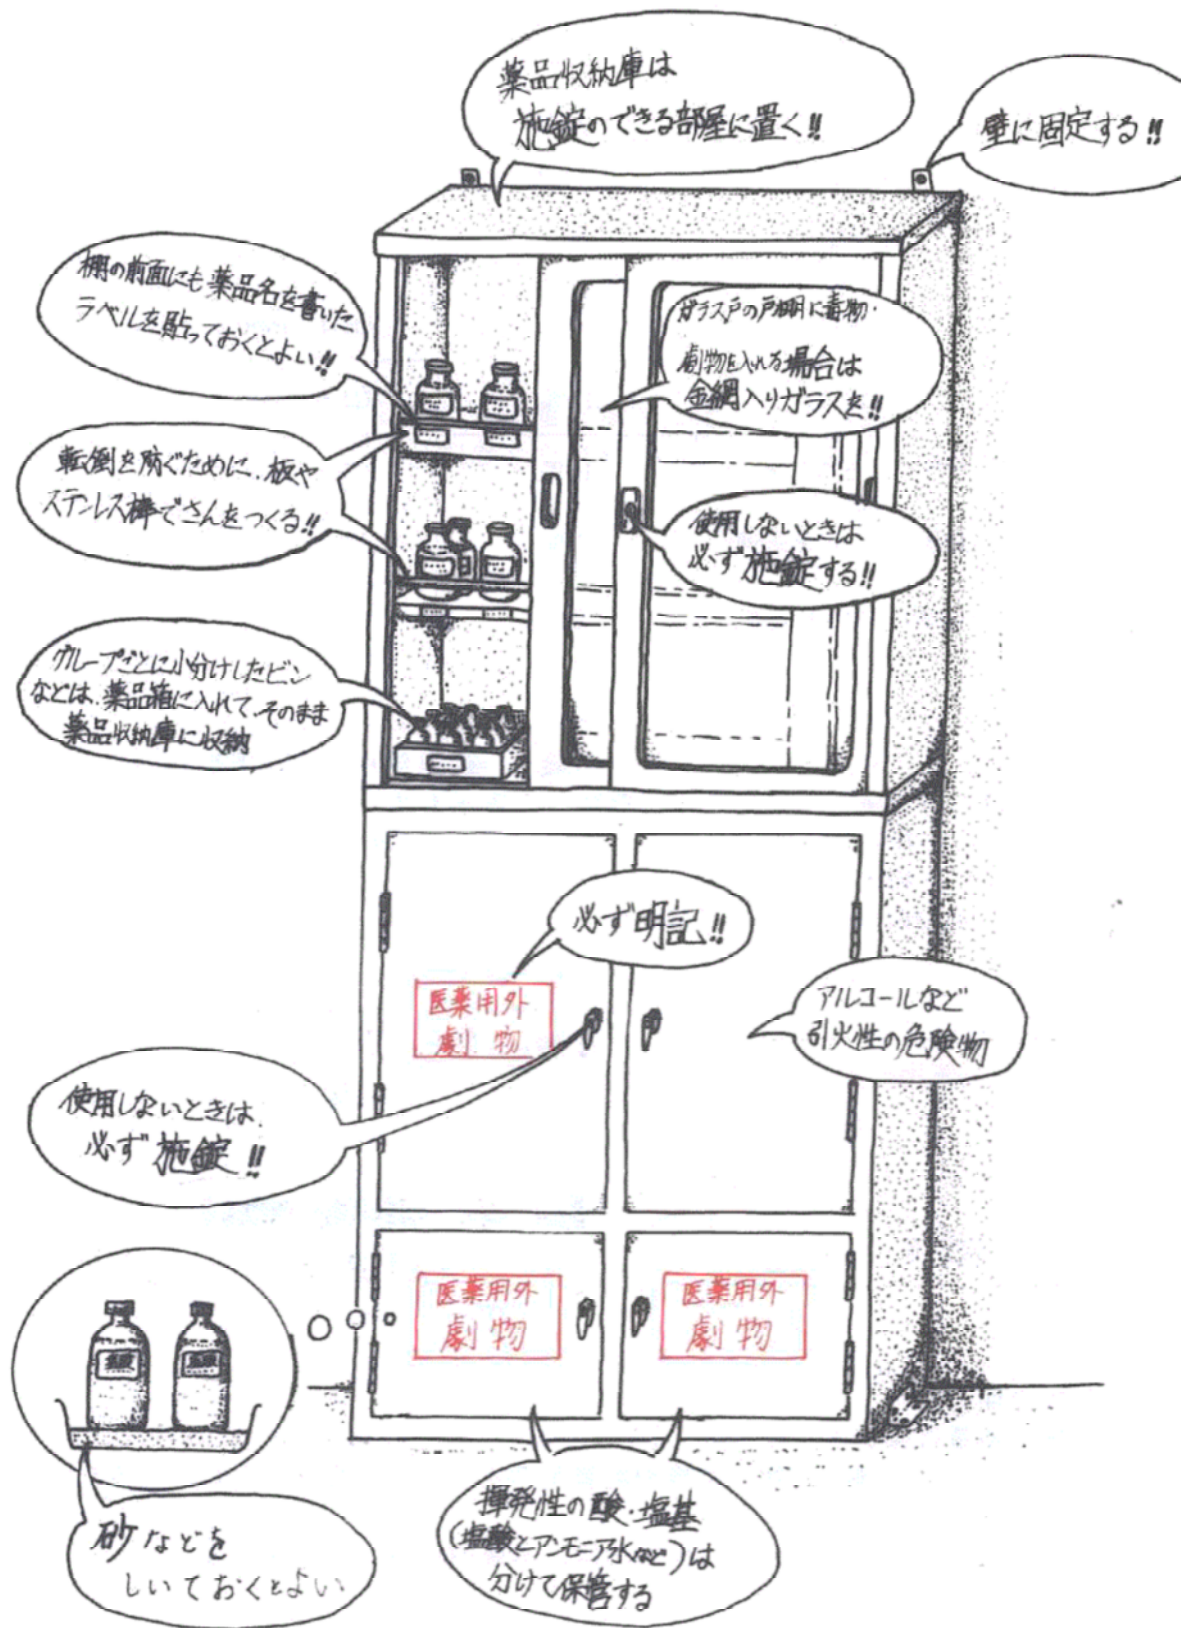 薬品収納庫は
施錠のできる部屋に置く!!
壁に固定する!!
棚の前面にも薬品名を書いた
ラベルを貼っておくとよい!!
ガラス戸の戸棚に毒物・
劇物を入れる場合は
金網入りガラスを!!
転倒を防ぐために、板や
ステンレス棒でさんをつくる!!
使用しないときは
必ず施錠する!!
グループごとに小分けしたビン
などは、薬品箱に入れて、そのまま
薬品収納庫に収納
必ず明記!!
医薬用外
劇物
アルコールなど
引火性の危険物
使用しないときは、
必ず施錠!!
医薬用外
劇物
医薬用外
劇物
塩酸
塩酸
砂などを
しいておくとよい
揮発性の酸・塩基
(塩酸とアンモニア水など)は
分けて保管する